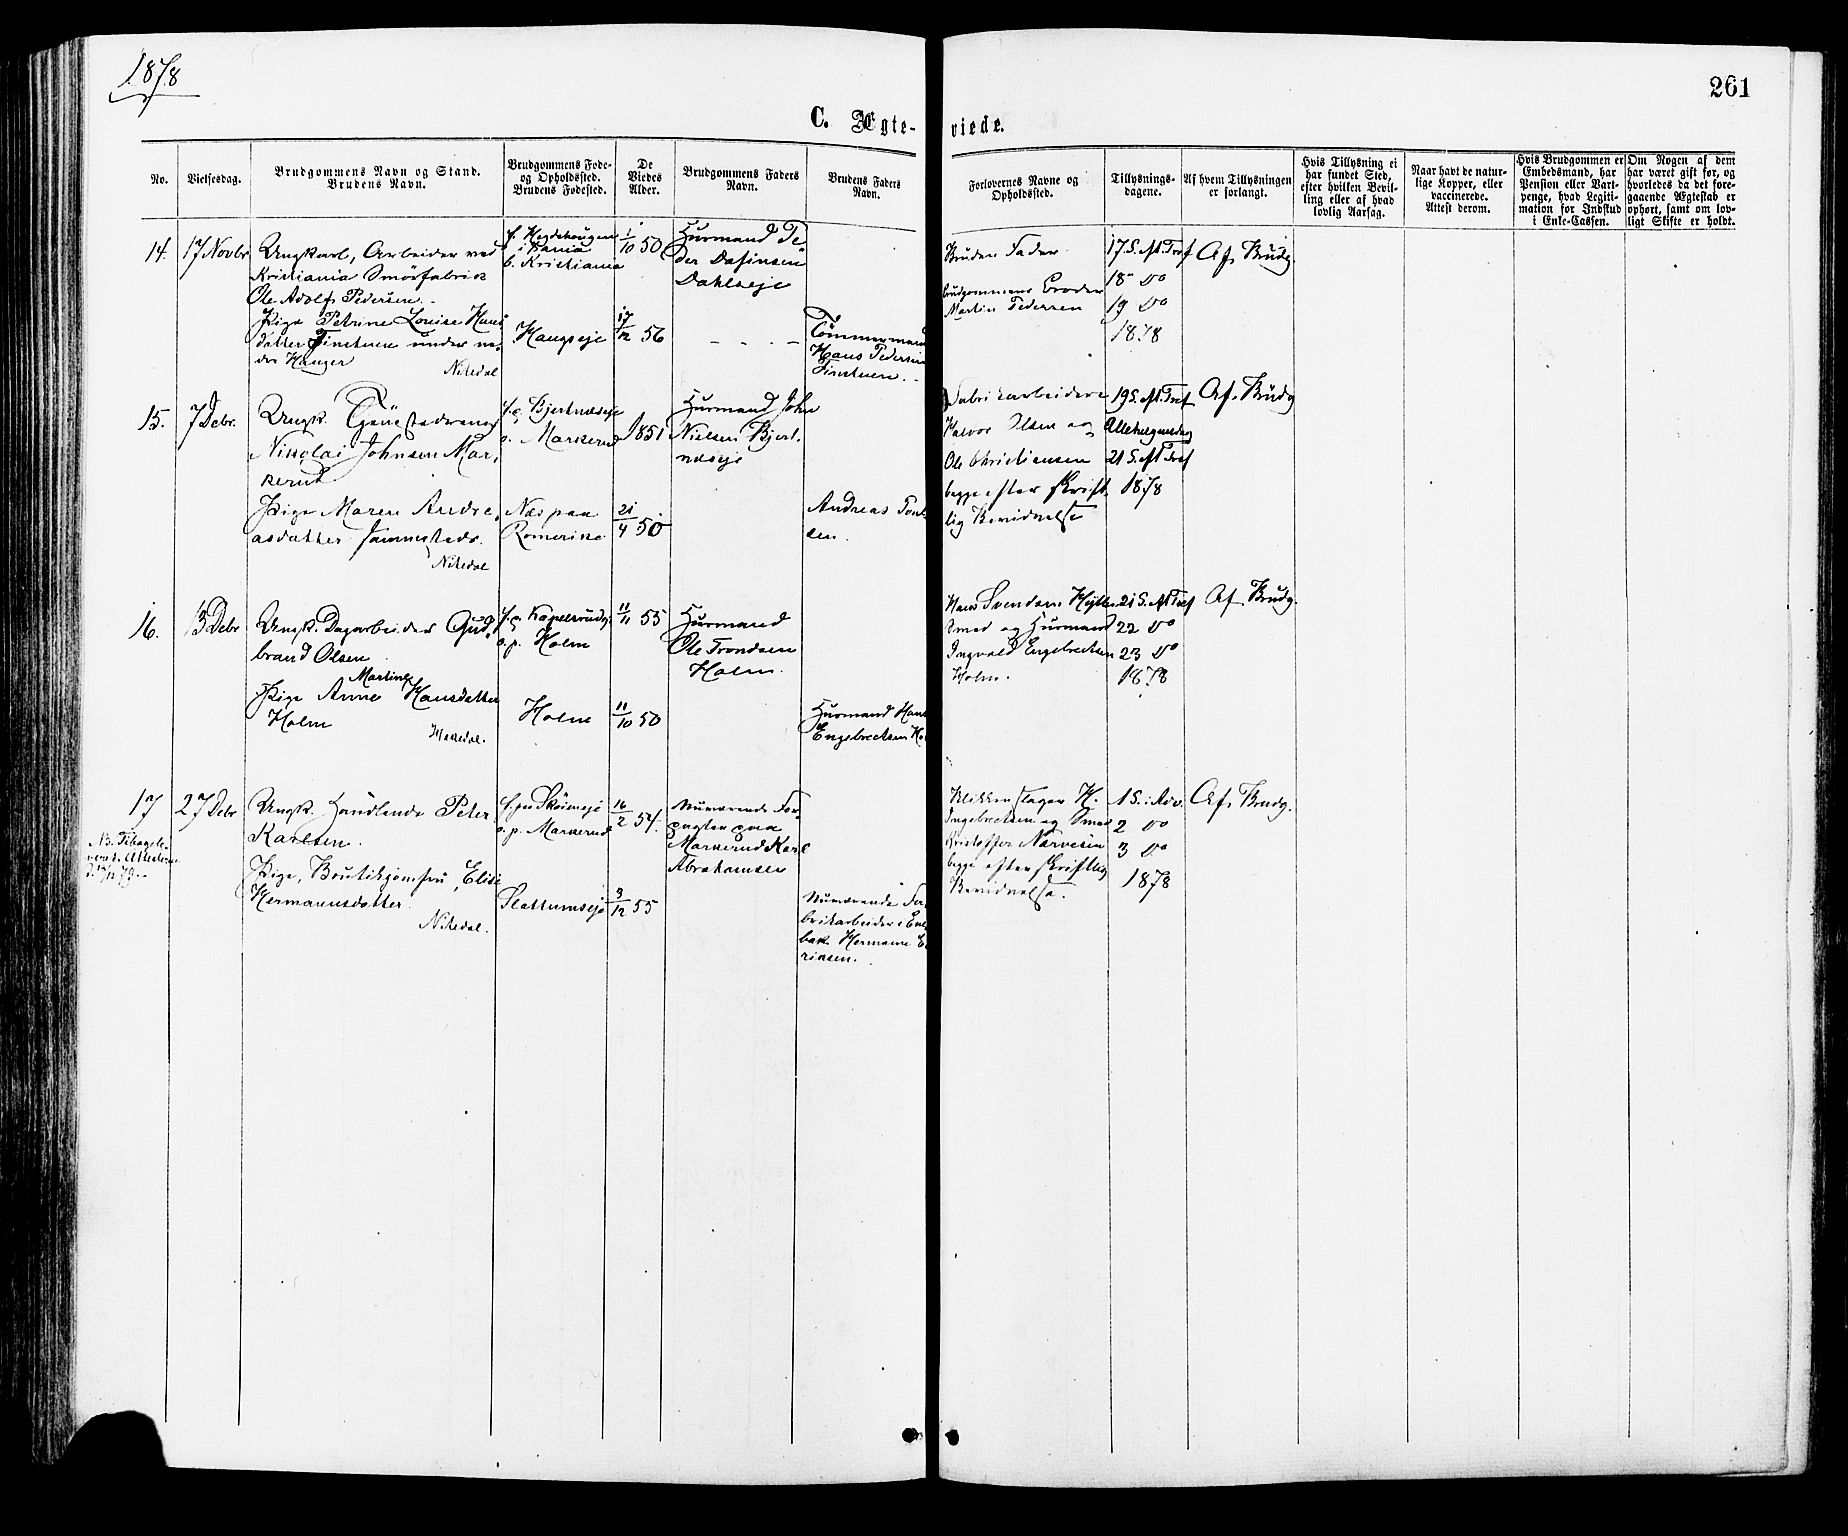 1878
261
C. Ægte-
viede.
No.
Vielsesdag.
Brudgommens Navn og Stand.
Brudens Navn.
Brudgommens Føde-
og Opholdssted.
Brudens Fødested.
De
Viedes
Alder.
Brudgommens Faders
Navn.
Brudens Faders
Navn.
Forlovernes Navne og
Opholdssted.
Tillysnings-
dagene.
Af hvem Tillysningen
er forlangt.
Hvis Tillysning ei
har fundet Sted,
efter hvilken Bevil-
ling eller af hvad
lovlig Aarsag.
Naar havt de natur-
lige Kopper, eller
vaccinerede.
Attest derom.
Hvis Brudgommen er
Embedsmand, har
Pension eller Vart-
penge, hvad Legiti-
mation for Indskud
i Enke-Cassen.
Om Nogen af dem
har været gift før, og
hvorledes da det fore-
gaaende Ægteskab er
ophørt, samt om lov-
ligt Skifte er holdt.
14.
17 Novbr
Ungkarl, Arbeider ved
Kristiania Smörfabrik
Ole Adolf Pedersen.
Pige Petrine Louise Hans
datter Finstuen under ne-
dre Hauger
Nitedal
b. Kristiania
Haugseje
1/10 50
17/12 56
Husmand Pe-
der
Dahlseje
Tömmermand
Hans Pedersen
Finstuen.
Brudens Fader
brudgommens Broder
Martin Pedersen
17 S. e. Tref
18 do
19 do
1878
Af Brudg
15.
7 Debr.
Ungk.
Nikolai Johnsen Mar-
kerud
Pige Maren Andre-
asdatter
Nitedal
f. p. Bjertnæseje
o. Markerud
Næs paa
Romerike
1851
21/4 50
Husmand John
Nielsen Bjert-
næseje
Andreas
sen.
Fabrikarbeidere
Halvor Olsen og
Ole Christiansen
begge efter skrift-
lig Bevidnelse
19 S. e. Tref
Allehelgensdag
21 S. e. Tref
1878
Af Brudg
16.
13 Debr
Ungk. Dagarbeider Gud-
brand Olsen
Martine
Pige Anne Hansdatter
Holm
o. p. Holm
Holm
11/11 55
11/10 50
Husmand
Ole Trondsen
Holm.
Husmand Hans
Engebretsen
Hans Svendsen
Smed og Husmand
Ingvald Engebretsen
Holm.
21 S. e. Tref
22 do
23 do
1878
Af Brudg.
17
27 Debr
Ungk. Handlende Peter
Karlsen.
Pige, Boutikjomfru, Elise
Hermannsdatter
Nitedal.
o. p. Markerud
Slattumseje
16/2 54.
9/12 55
Nuværende For-
pagter paa
Markerud Karl
Abrahamsen
Nuværende Fa-
brikarbeider i
bak Hermann
riksen.
Blikkenslager H.
Ingebretsen og Smed
Kristoffer Narvesen
begge efter skriftlig
Bevidnelse.
1 S. i Adv.
2 do
3 do
1878
Af Brudg.